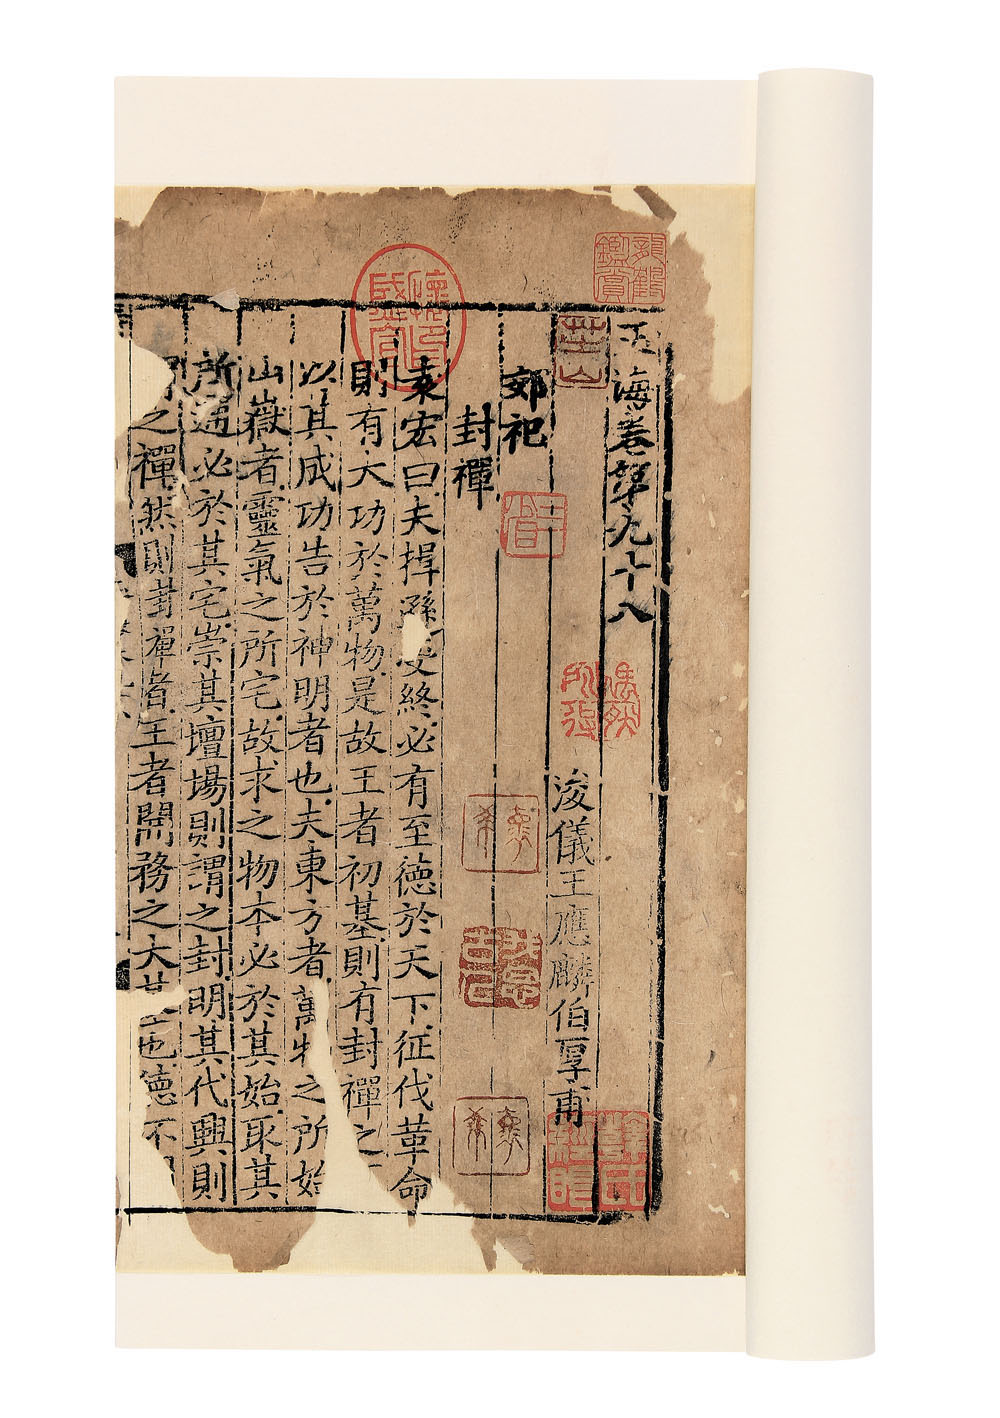 玉海卷第九十八
浚儀王應麟伯厚甫
郊祀
封禪
袁宏曰夫揖遜受終必有至德於天下征伐革命
則有大功於萬物是故王者初基則有封禪之
以其成功告於神明者也夫東方者萬物之所始
山嶽者靈氣之所宅故求之物本必於其始取其
所通必於其宅崇其壇場則謂之封明其代興則
謂之禪然則封禪者王者開務之大 也德不
龍鶴鑑賞
芷山